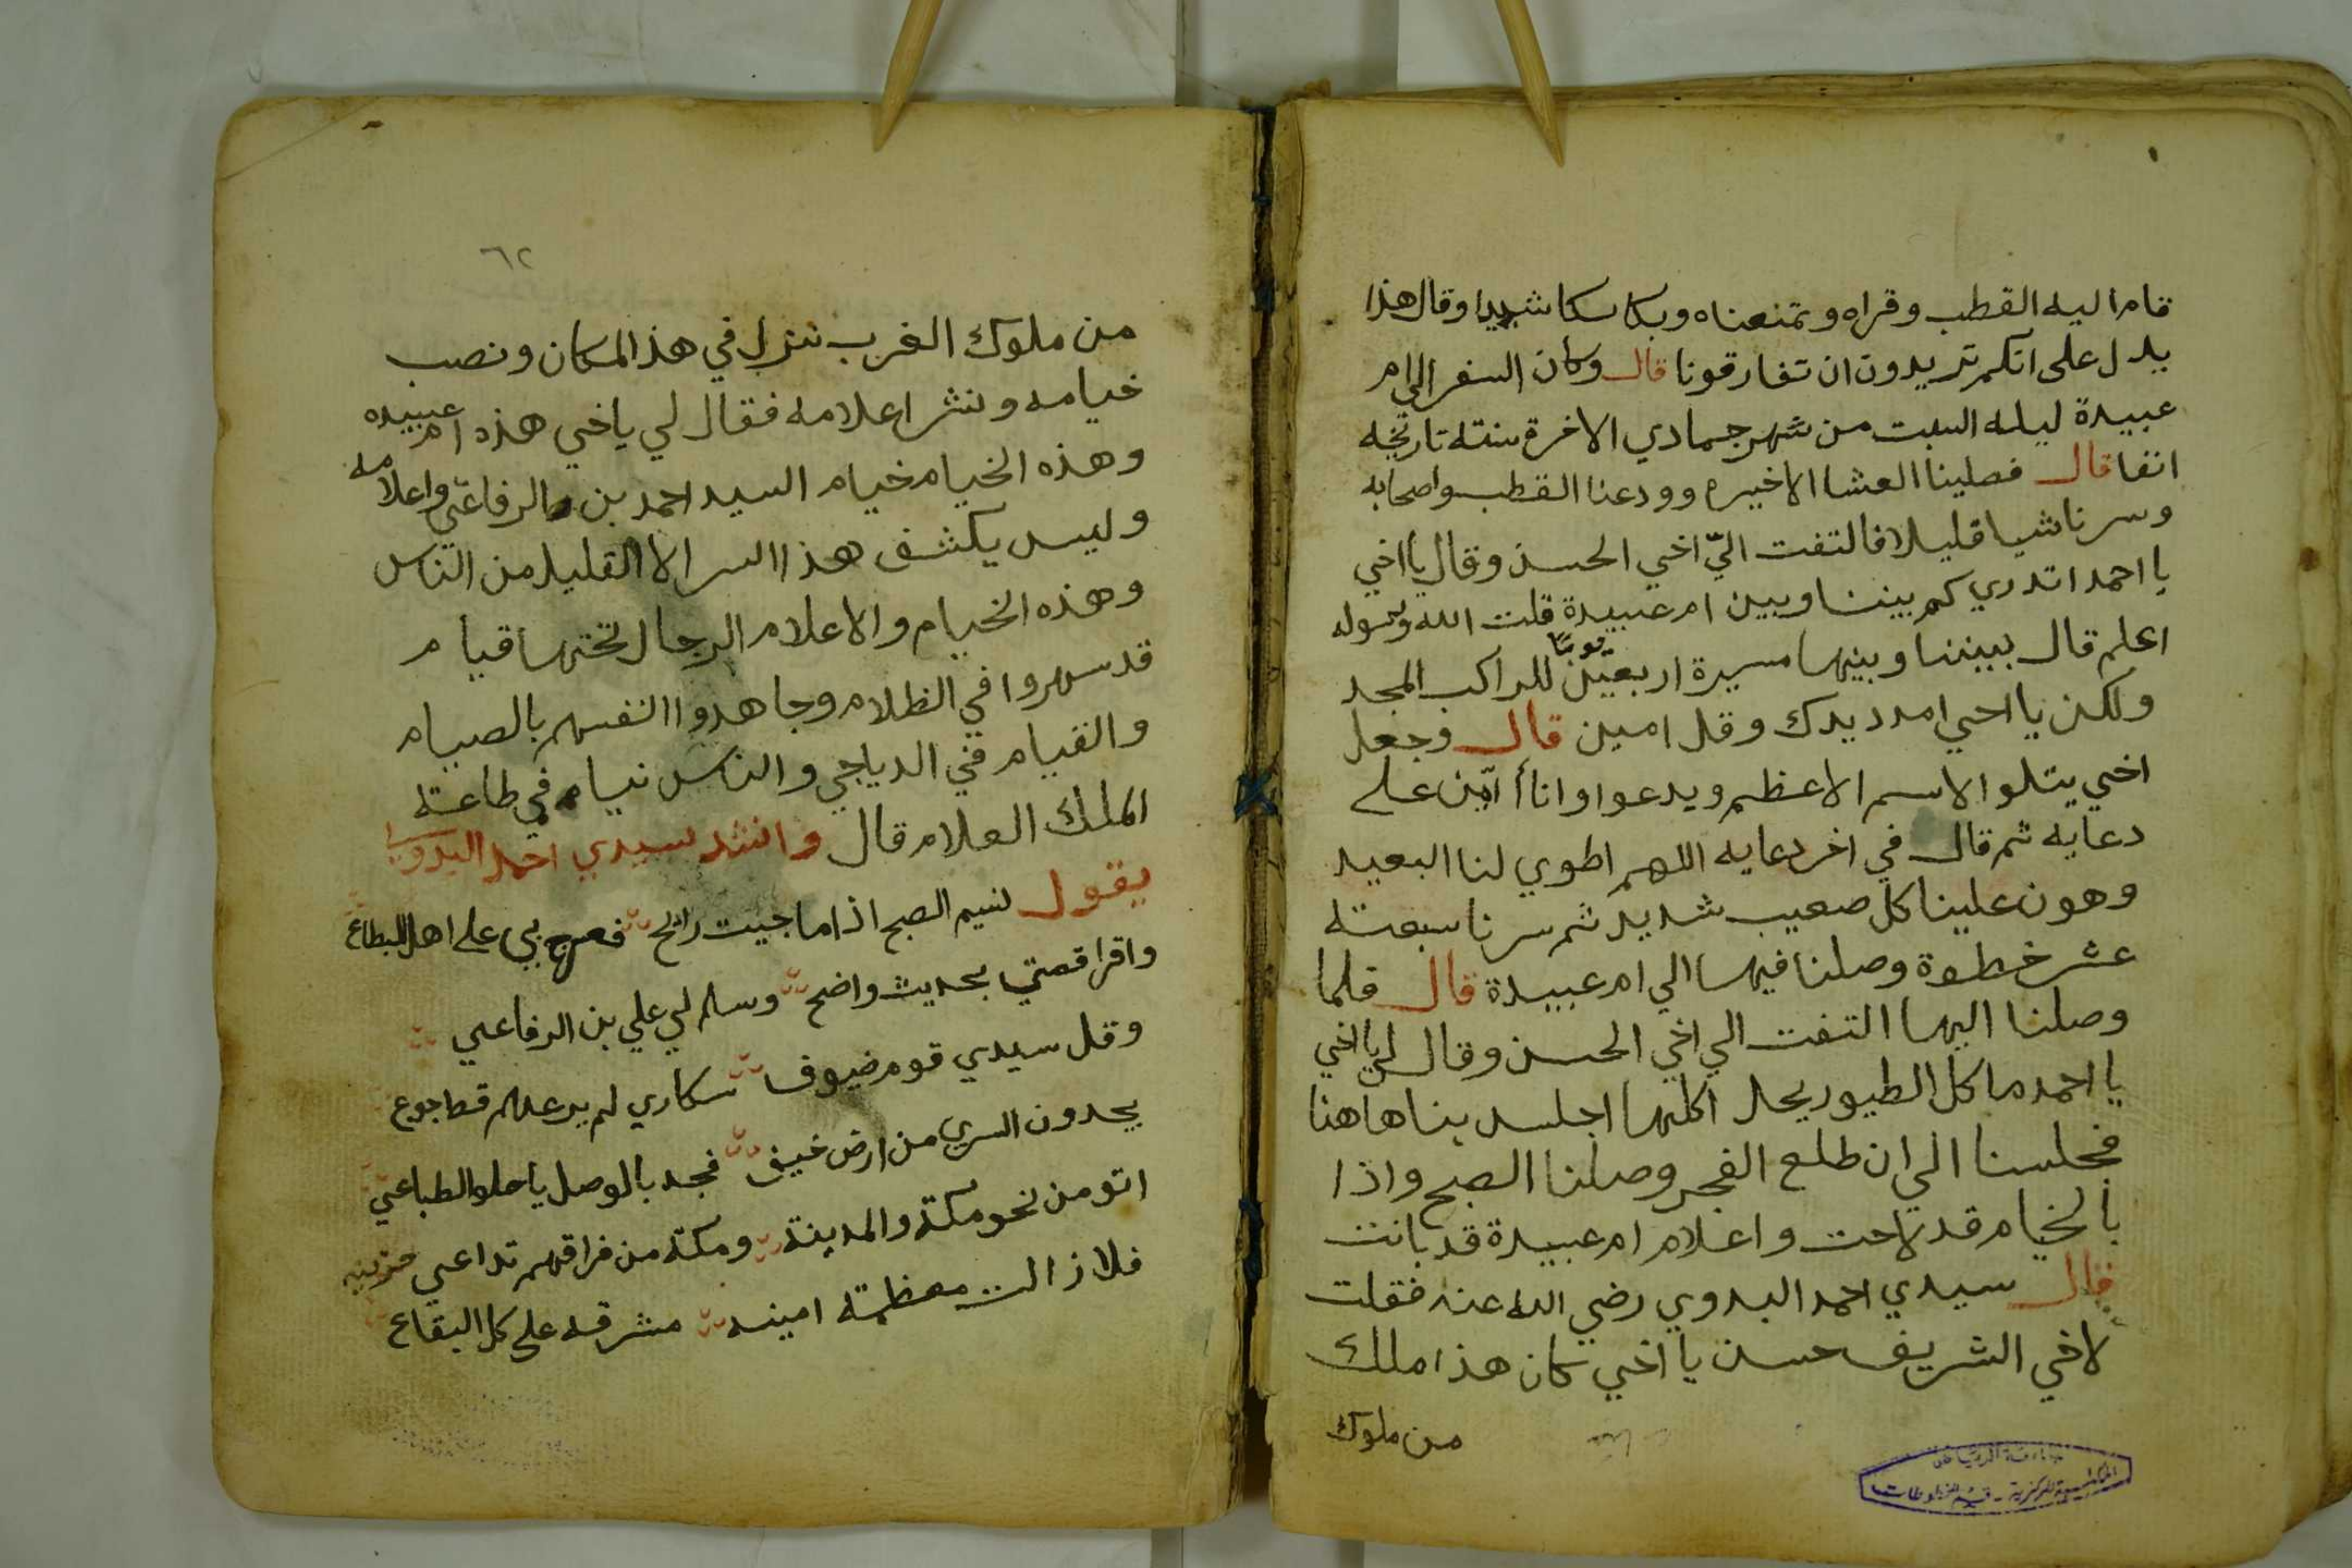 قام اليه القطب وقراه وتمنعناه وبكا بكا شديدا وقال هذا
يدل على انكم تريدون ان تفارقونا قال وكان السفر الي ام
عبيدة ليله السبت من شهر جمادي الاخرة سنته تاريخه
انفا قال فصلينا العشا الاخيره وودعنا القطب واصحابه
وسرنا شيا قليلا فالتفت اليّ اخي الحسن وقال يا اخي
يا احمد اتدري كم بيننا وبين ام عبيدة قلت الله ورسوله
اعلم قال بيننا وبينها مسيرة اربعين يومًا للراكب المجد
ولكن يا اخي امدد يدك وقل امين قال وجعل
اخي يتلوا الاسم الاعظم ويدعوا وانا أامّن علي
دعايه ثم قال في اخر دعايه اللهم اطوي لنا البعيد
وهون علينا كل صعيب شديد ثم سرنا سبعته
عشر خطوة وصلنا فيها الي ام عبيدة قال فلما
وصلنا اليها التفت الي اخي الحسن وقال لي يا اخي
يا احمد ما كل الطيور يحل اكلها اجلس بنا هاهنا
فجلسنا الي ان طلع الفجر وصلنا الصبح واذا
بالخيام قد لاحت واعلام ام عبيدة قد بانت
قال سيدي احمد البدوي رضي الله عنه فقلت
لاخي الشريف حسن يا اخي كان هذا ملك
من ملوك
جامعة الرياض
المكتبة المركزية - قسم المخطوطات
٦٢
من ملوك الغرب نزل في هذ المكان ونصب
خيامه ونشر اعلامه فقال لي ياخي هذه ام عبيده
وهذه الخيام خيام السيد احمد بن الرفاعي واعلامه
وليس يكشف هذا السر الا القليل من الناس
وهذه الخيام والاعلام الرجال تحتها قيام
قد سهروا في الظلام وجاهدوا انفسهم بالصيام
والقيام في الدياجي والناس نيام في طاعته
الملك العلام قال وانشد سيدي احمد البدوي
يقول نسيم الصبح اذا ما جيت رائح فعرج بي علي اهل البطاع
واقرا قصتي بحديث واضح وسلم لي علي بن الرفاعي
وقل سيدي قوم ضيوف سكاري لم يرعهم قط اجوع
يجدون السري من ارض خيف فجد بالوصل يا حلو الطباعي
اتو من نحو مكة والمدينة ومكة من فراقهم تداعي حزينه
فلا زالت معظمته امينه مشرفه علي كل البقاع